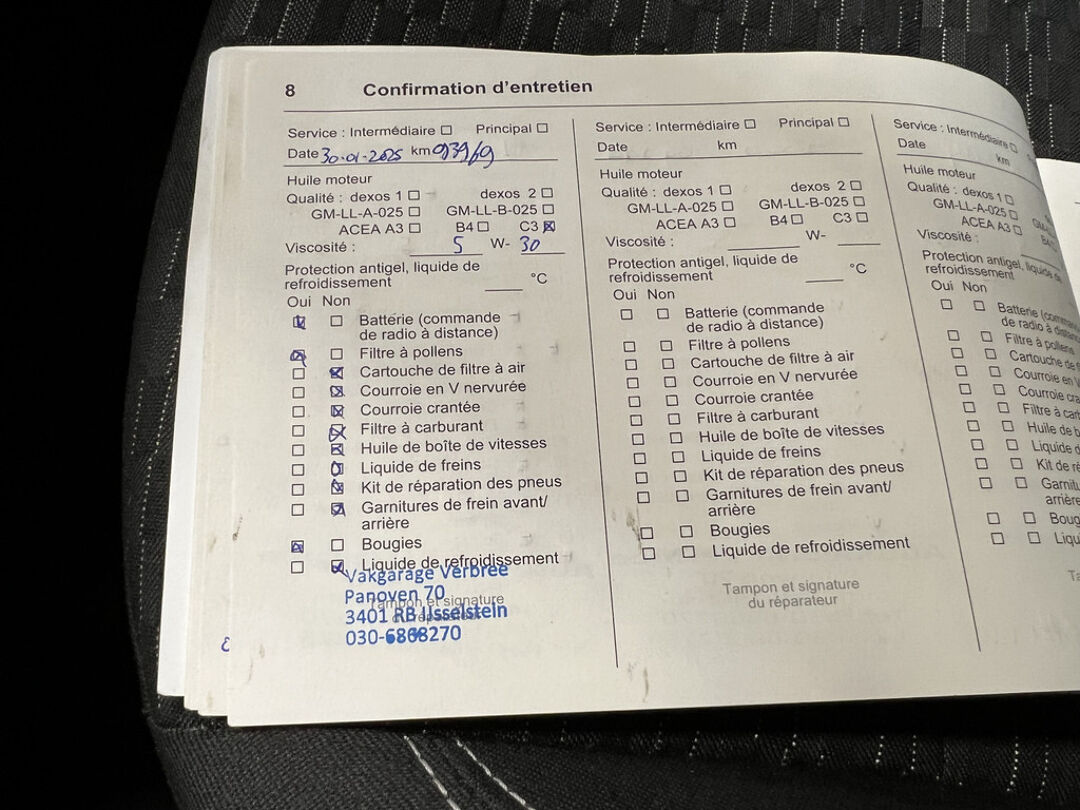 8 Confirmation d'entretien
Service : Intermédiaire ☐ Principal ☐
Date 30-01-2025 km 93969
Huile moteur
Qualité : dexos 1 ☐ dexos 2 ☐
GM-LL-A-025 ☐ GM-LL-B-025 ☐
ACEA A3 ☐ B4 ☐ C3 ☒
Viscosité : 5 W- 30
Protection antigel, liquide de
refroidissement °C
Oui Non
☒ ☐ Batterie (commande
de radio à distance)
☒ ☐ Filtre à pollens
☐ ☒ Cartouche de filtre à air
☐ ☒ Courroie en V nervurée
☐ ☒ Courroie crantée
☐ ☒ Filtre à carburant
☐ ☒ Huile de boîte de vitesses
☐ ☒ Liquide de freins
☐ ☒ Kit de réparation des pneus
☐ ☒ Garnitures de frein avant/
arrière
☒ ☐ Bougies
☐ ☒ Liquide de refroidissement
Vakgarage Verbree
Panoven 70
Tampon et signature
3401 RB IJsselstein
030-6868270
Service : Intermédiaire ☐ Principal ☐
Date km
Huile moteur
Qualité : dexos 1 ☐ dexos 2 ☐
GM-LL-A-025 ☐ GM-LL-B-025 ☐
ACEA A3 ☐ B4 ☐ C3 ☐
Viscosité : W-
Protection antigel, liquide de
refroidissement °C
Oui Non
☐ ☐ Batterie (commande
de radio à distance)
☐ ☐ Filtre à pollens
☐ ☐ Cartouche de filtre à air
☐ ☐ Courroie en V nervurée
☐ ☐ Courroie crantée
☐ ☐ Filtre à carburant
☐ ☐ Huile de boîte de vitesses
☐ ☐ Liquide de freins
☐ ☐ Kit de réparation des pneus
☐ ☐ Garnitures de frein avant/
arrière
☐ ☐ Bougies
☐ ☐ Liquide de refroidissement
Tampon et signature
du réparateur
Service : Intermédiaire ☐
Date km
Huile moteur
Qualité : dexos 1 ☐
GM-LL-A-025 ☐
ACEA A3 ☐
Viscosité :
Protection antigel, liquide de
refroidissement
Oui Non
☐ ☐ Batterie (com
de radio à distan
☐ ☐ Filtre à pollens
☐ ☐ Cartouche de
☐ ☐ Courroie en V
☐ ☐ Courroie cra
☐ ☐ Filtre à carb
☐ ☐ Huile de b
☐ ☐ Liquide d
☐ ☐ Kit de ré
☐ ☐ Garnitu
arrière
☐ ☐ Boug
☐ ☐ Liqu